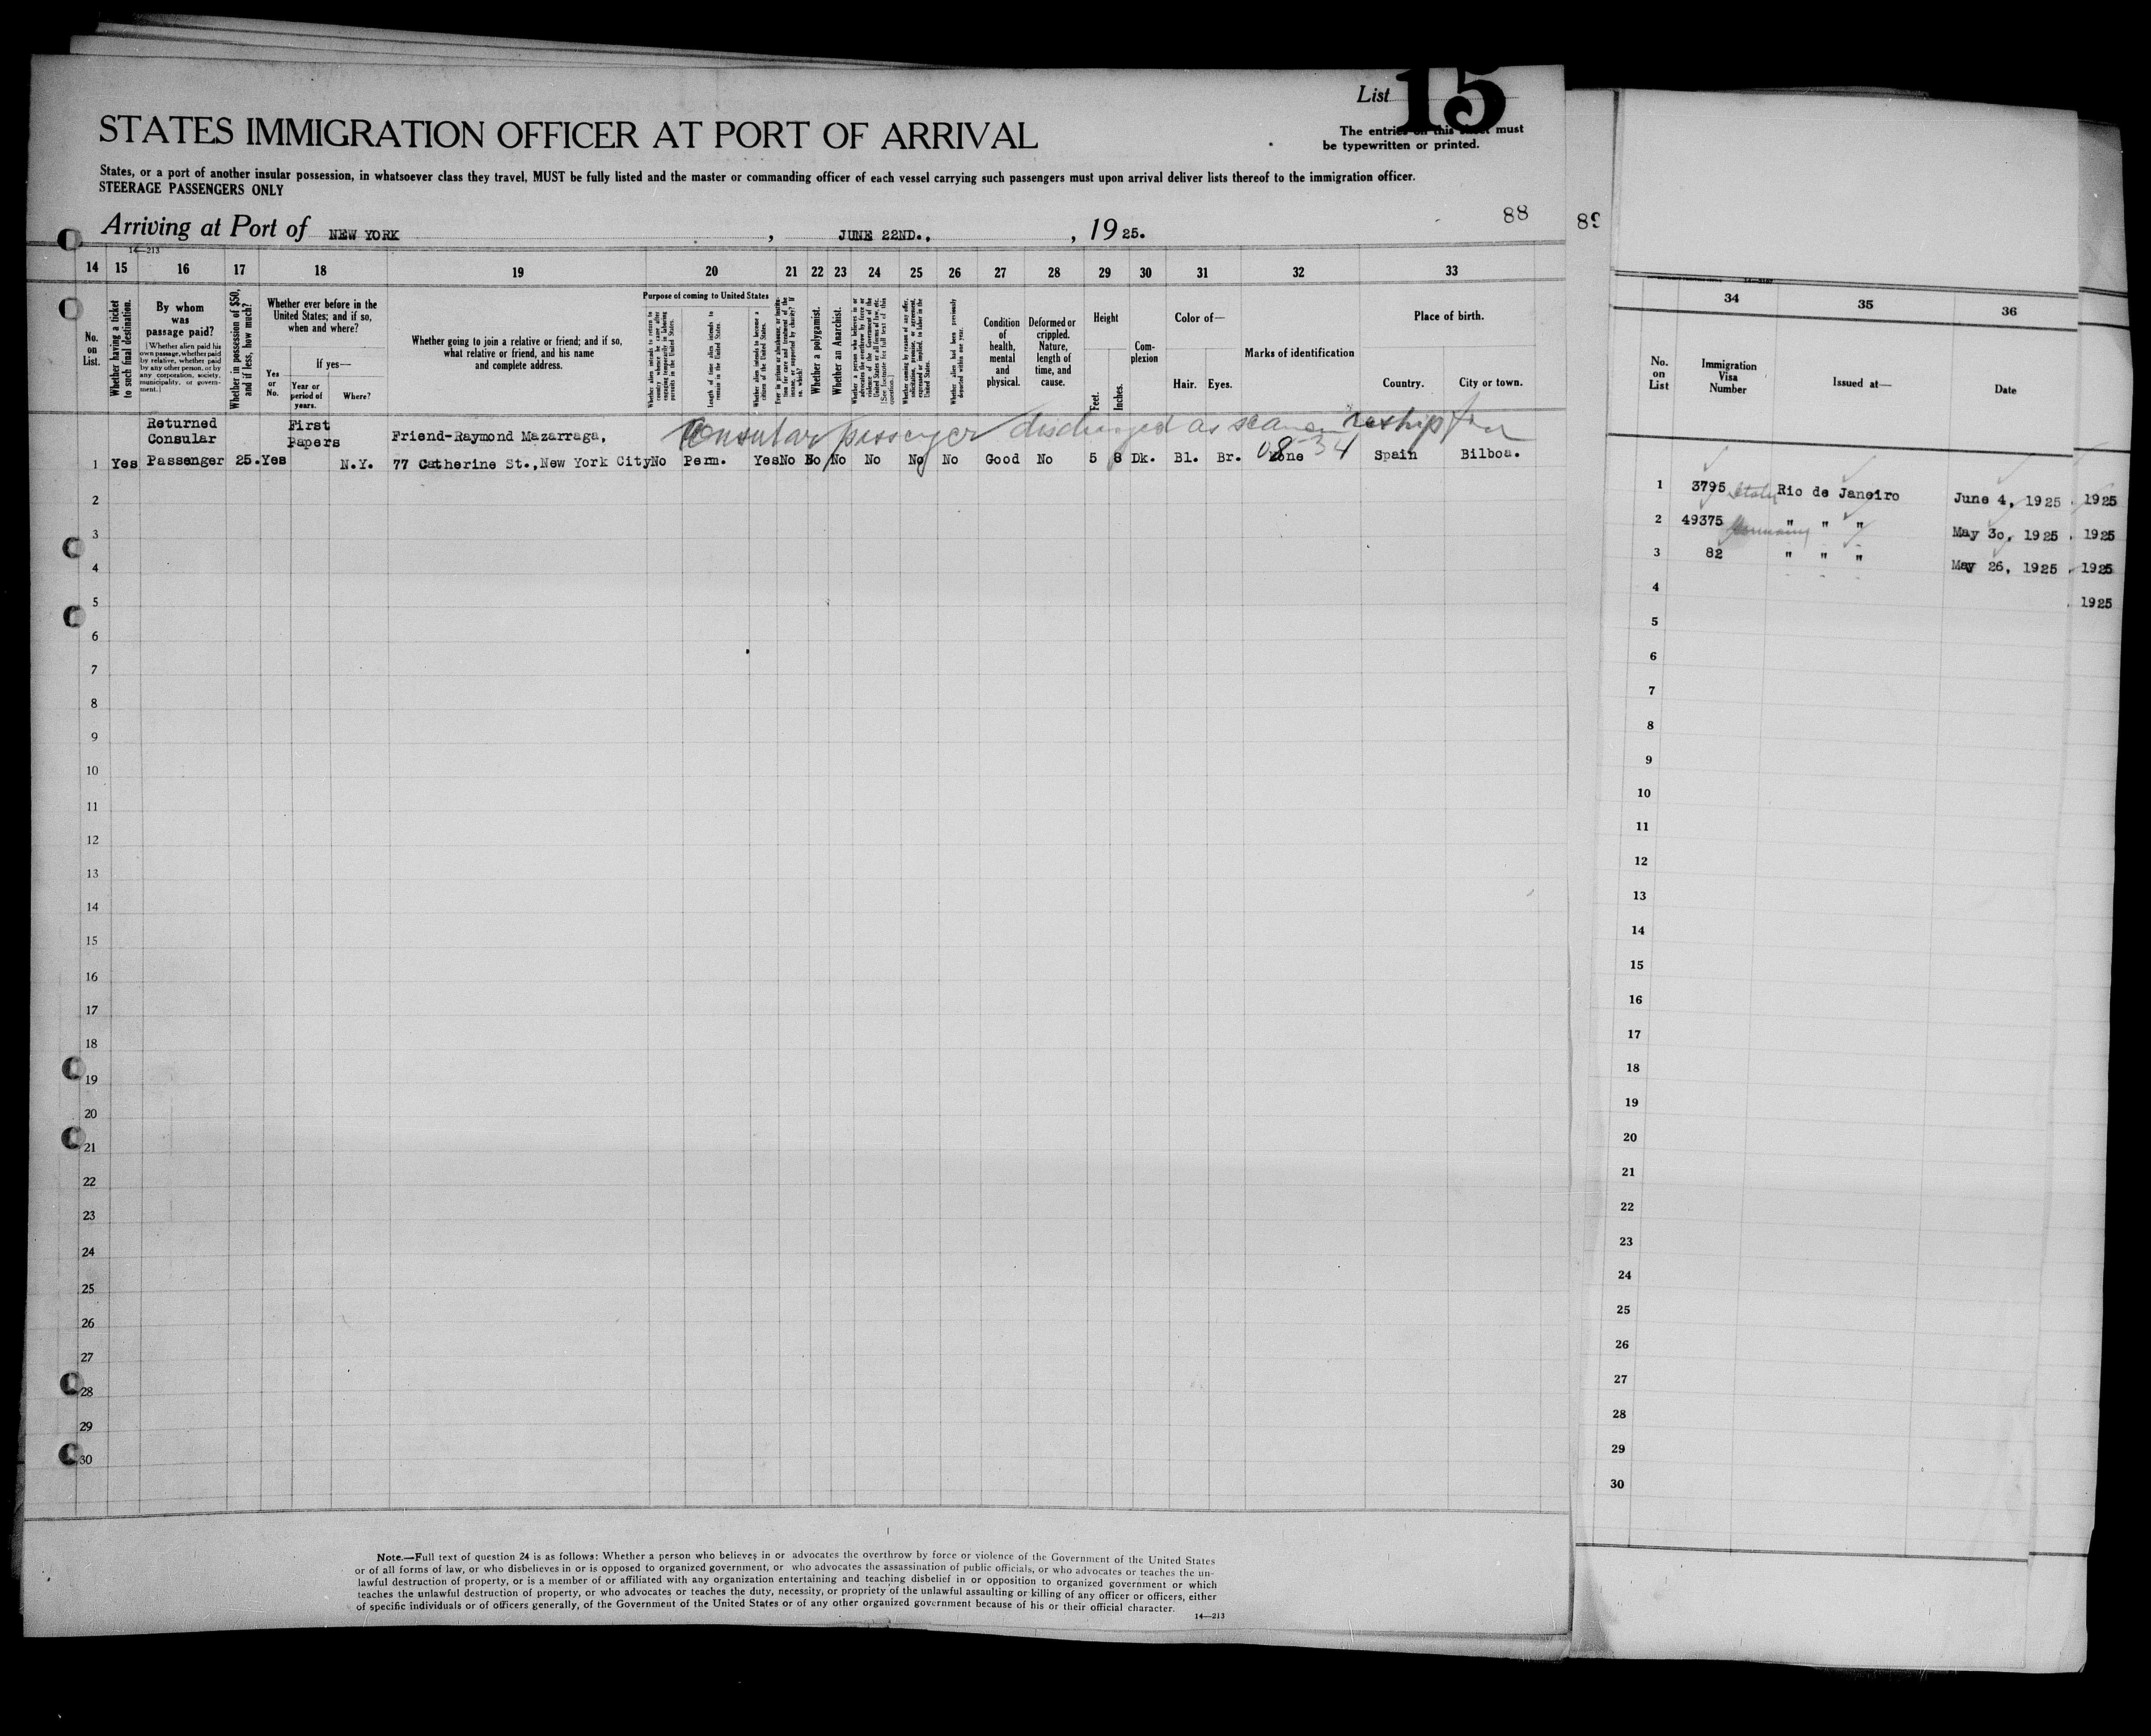 List 15
STATES IMMIGRATION OFFICER AT PORT OF ARRIVAL
The entries on this sheet must
be typewritten or printed.
States, or a port of another insular possession, in whatsoever class they travel, MUST be fully listed and the master or commanding officer of each vessel carrying such passengers must upon arrival deliver lists thereof to the immigration officer.
STEERAGE PASSENGERS ONLY
Arriving at Port of NEW YORK, JUNE 22ND., , 1925.
88
89
14—213
14 15 16 17 18 19 20 21 22 23 24 25 26 27 28 29 30 31 32 33
No. on List.
Whether having a ticket to such final destination.
By whom was passage paid?
[Whether alien paid his own passage, whether paid by relative, whether paid by any other person, or by any corporation, society, municipality, or government.]
Whether in possession of $50, and if less, how much?
Whether ever before in the United States; and if so, when and where?
Yes or No.
If yes—
Year or period of years.
Where?
Whether going to join a relative or friend; and if so, what relative or friend, and his name and complete address.
Purpose of coming to United States
Whether alien intends to return to country whence he came after engaging temporarily in laboring pursuits in the United States.
Length of time alien intends to remain in the United States.
Whether alien intends to become a citizen of the United States.
Whether a polygamist.
Whether an Anarchist.
Whether coming by reason of any offer, solicitation, promise, or agreement, expressed or implied, to labor in the United States.
Whether alien had been previously deported within one year.
Condition of health, mental and physical.
Deformed or crippled. Nature, length of time, and cause.
Height
Feet. Inches.
Complexion
Color of—
Hair. Eyes.
Marks of identification
Place of birth.
Country. City or town.
Consular passenger discharged as seaman
Returned
Consular
First
Papers
Friend-Raymond Mazarraga,
1 Yes Passenger 25. Yes N.Y. 77 Catherine St., New York City No Perm. Yes No No No No No No Good No 5 8 Dk. Bl. Br. None Spain Bilboa.
2
3
4
5
6
7
8
9
10
11
12
13
14
15
16
17
18
19
20
21
22
23
24
25
26
27
28
29
30
Note.—Full text of question 24 is as follows: Whether a person who believes in or advocates the overthrow by force or violence of the Government of the United States
or of all forms of law, or who disbelieves in or is opposed to organized government, or who advocates the assassination of public officials, or who advocates or teaches the un-
lawful destruction of property, or is a member of or affiliated with any organization entertaining and teaching disbelief in or opposition to organized government or which
teaches the unlawful destruction of property, or who advocates or teaches the duty, necessity, or propriety of the unlawful assaulting or killing of any officer or officers, either
of specific individuals or of officers generally, of the Government of the United States or of any other organized government because of his or their official character.
14—213
34 35 36
No. on List
Immigration Visa Number
Issued at—
Date
1 3795 Rio de Janeiro June 4, 1925 1925
2 49375 Germany " " " May 30, 1925 1925
3 82 " " " May 26, 1925 1925
4 1925
5
6
7
8
9
10
11
12
13
14
15
16
17
18
19
20
21
22
23
24
25
26
27
28
29
30